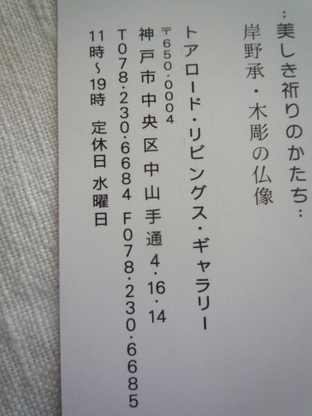 :美しき祈りのかたち:
岸野承・木彫の仏像
トアロード・リビングス・ギャラリー
〒650-0004
神戸市中央区中山手通4-16-14
T078-230-6684 F078-230-6685
11時〜19時 定休日 水曜日